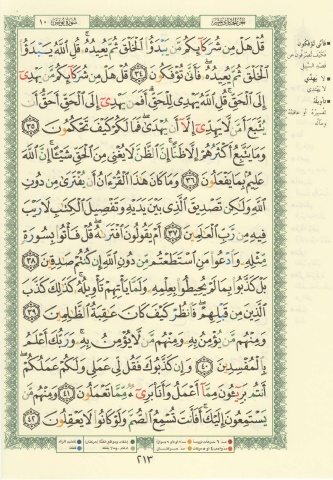 سورة يونس ١٠
قُلْ هَلْ مِن شُرَكَآئِكُم مَّن يَبْدَؤُا۟ ٱلْخَلْقَ ثُمَّ يُعِيدُهُۥ ۚ قُلِ ٱللَّهُ يَبْدَؤُا۟
ٱلْخَلْقَ ثُمَّ يُعِيدُهُۥ ۖ فَأَنَّىٰ تُؤْفَكُونَ ٣٤ قُلْ هَلْ مِن شُرَكَآئِكُم مَّن يَهْدِىٓ
إِلَى ٱلْحَقِّ ۚ قُلِ ٱللَّهُ يَهْدِى لِلْحَقِّ ۗ أَفَمَن يَهْدِىٓ إِلَى ٱلْحَقِّ أَحَقُّ أَن
يُتَّبَعَ أَمَّن لَّا يَهِدِّىٓ إِلَّآ أَن يُهْدَىٰ ۖ فَمَا لَكُمْ كَيْفَ تَحْكُمُونَ ٣٥
وَمَا يَتَّبِعُ أَكْثَرُهُمْ إِلَّا ظَنًّا ۚ إِنَّ ٱلظَّنَّ لَا يُغْنِى مِنَ ٱلْحَقِّ شَيْـًٔا ۚ إِنَّ ٱللَّهَ
عَلِيمٌۢ بِمَا يَفْعَلُونَ ٣٦ وَمَا كَانَ هَٰذَا ٱلْقُرْءَانُ أَن يُفْتَرَىٰ مِن دُونِ
ٱللَّهِ وَلَٰكِن تَصْدِيقَ ٱلَّذِى بَيْنَ يَدَيْهِ وَتَفْصِيلَ ٱلْكِتَٰبِ لَا رَيْبَ
فِيهِ مِن رَّبِّ ٱلْعَٰلَمِينَ ٣٧ أَمْ يَقُولُونَ ٱفْتَرَىٰهُ ۖ قُلْ فَأْتُوا۟ بِسُورَةٍ
مِّثْلِهِۦ وَٱدْعُوا۟ مَنِ ٱسْتَطَعْتُم مِّن دُونِ ٱللَّهِ إِن كُنتُمْ صَٰدِقِينَ ٣٨
بَلْ كَذَّبُوا۟ بِمَا لَمْ يُحِيطُوا۟ بِعِلْمِهِۦ وَلَمَّا يَأْتِهِمْ تَأْوِيلُهُۥ ۚ كَذَٰلِكَ كَذَّبَ
ٱلَّذِينَ مِن قَبْلِهِمْ ۖ فَٱنظُرْ كَيْفَ كَانَ عَٰقِبَةُ ٱلظَّٰلِمِينَ ٣٩
وَمِنْهُم مَّن يُؤْمِنُ بِهِۦ وَمِنْهُم مَّن لَّا يُؤْمِنُ بِهِۦ ۚ وَرَبُّكَ أَعْلَمُ
بِٱلْمُفْسِدِينَ ٤٠ وَإِن كَذَّبُوكَ فَقُل لِّى عَمَلِى وَلَكُمْ عَمَلُكُمْ ۖ
أَنتُم بَرِيٓـُٔونَ مِمَّآ أَعْمَلُ وَأَنَا۠ بَرِىٓءٌ مِّمَّا تَعْمَلُونَ ٤١ وَمِنْهُم مَّن
يَسْتَمِعُونَ إِلَيْكَ ۚ أَفَأَنتَ تُسْمِعُ ٱلصُّمَّ وَلَوْ كَانُوا۟ لَا يَعْقِلُونَ ٤٢
فأنى تؤفكون
لا يهدي
تأويله
٢١٣